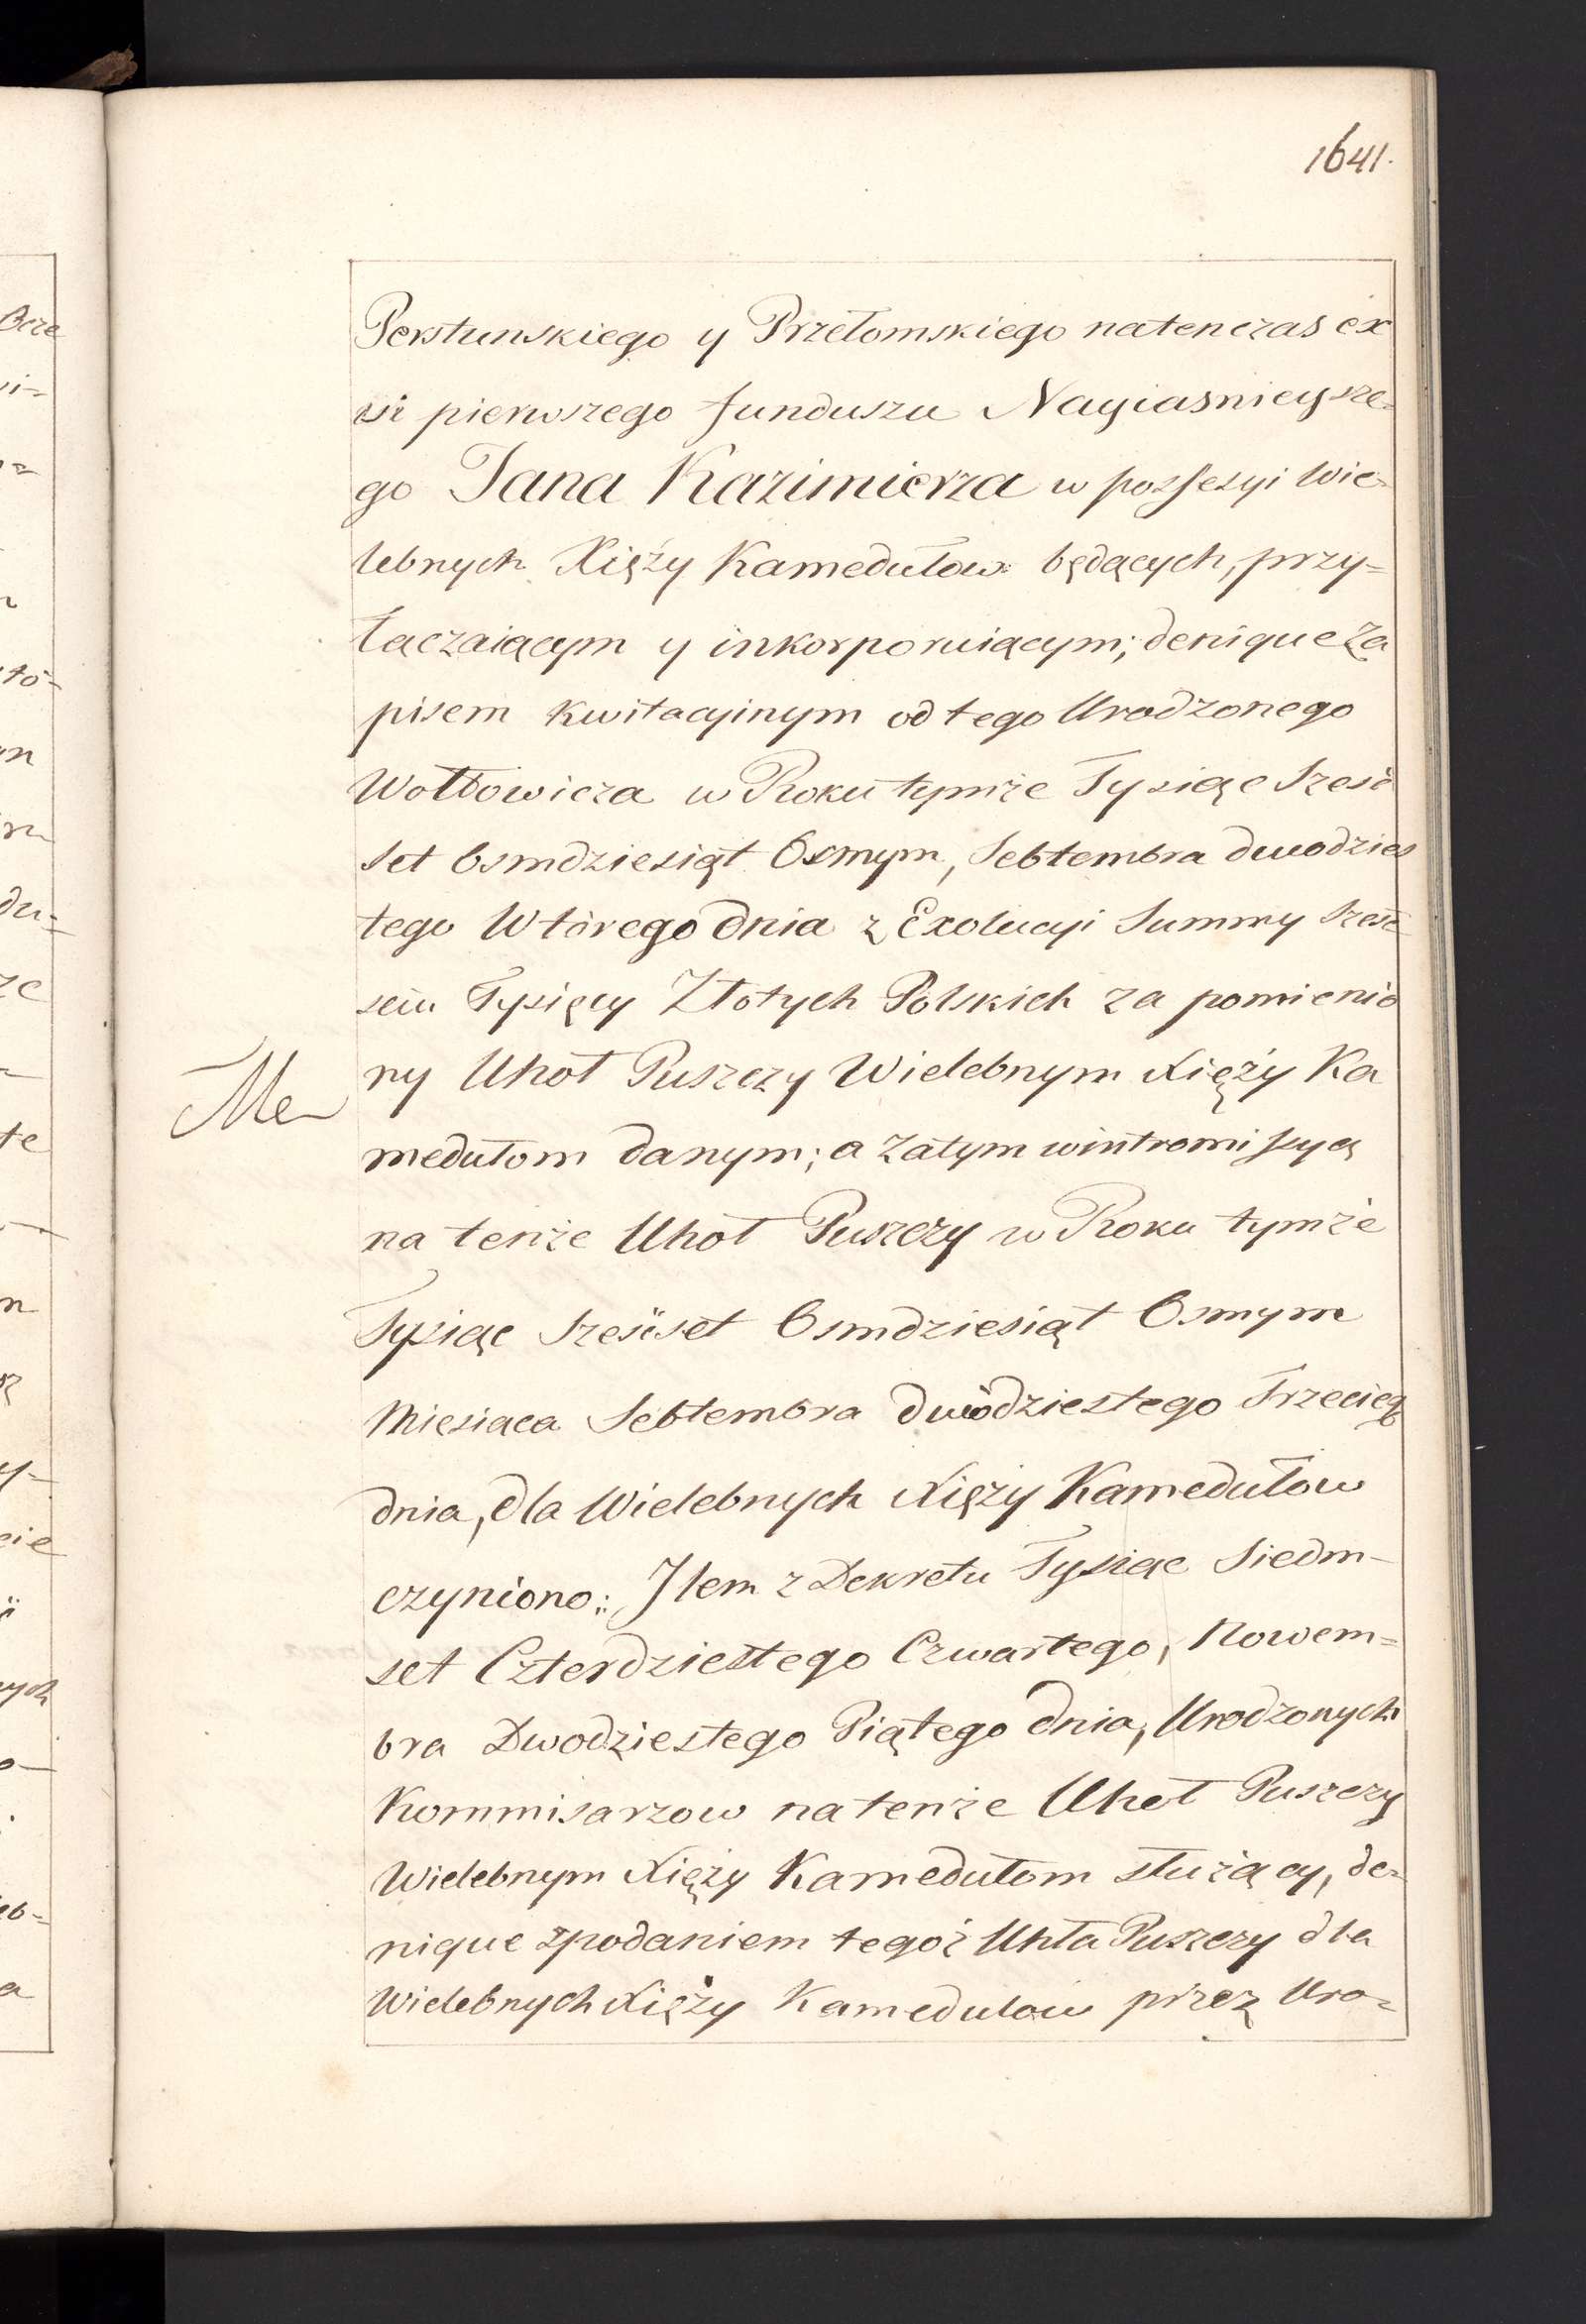 1641.
Perstunskiego y Przełomskiego natenczas ex
vi pierwszego funduszu Nayiasnieysze=
go Jana Kazimierza w possesyi Wie=
lebnych Xięży Kamedułow będących, przy=
łączaiącym y inkorporuiącym; denique za
pisem kwitacyinym od tego Urodzonego
Wołłowicza w Roku tymże Tysiąc Sześć
set Osmdziesiąt Osmym, Sebtembra dwodzies
tego Wtórego dnia z Exolucyi Summy sześć
seiu Tysięcy Złotych Polskich za pomienio
ny Uhoł Puszczy Wielebnym Xięży Ka
medułom danym; a zatym wintromissyą
na tenże Uhoł Puszczy w Roku tymże
Tysiąc Sześćset Osmdziesiąt Osmym
Miesiąca Sebtembra dwódziestego Trzeciego
dnia, dla Wielebnych Xięży Kamedułow
czyniono; Item z Dekretu Tysiąc Siedm-
set Czterdziestego Czwartego, Nowem=
bra Dwodziestego Piątego dnia, Urodzonych
Kommisarzow na tenże Uhoł Puszczy
Wielebnym Xięży Kamedułom służący, de=
nique zpodaniem tegoż Uhła Puszczy dla
Wielebnych Xięży Kamedulow przez Uro=